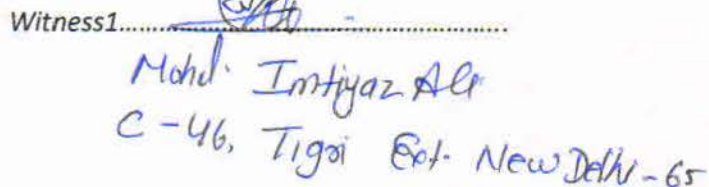 Witness1..........................................................
Mohd. Imtiyaz Ali
C-46, Tigri Ext. New Delhi-65